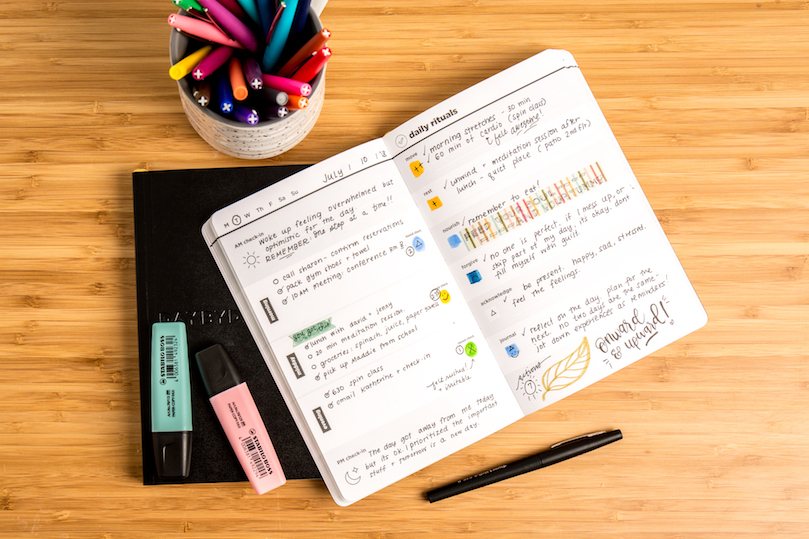 July / 10 / 18
M T W Th F Sa Su
AM check-in
Woke up feeling overwhelmed but
optimistic for the day.
REMEMBER: One step at a time!!
call sharon - confirm reservations
pack gym shoes + towel
10AM meeting conference RM B
lunch with david + jenny
20 min meditation session
groceries: spinach, juice, paper towel
pick up maddie from school
630 spin class
email katherine + check-in
PM check-in
The day got away from me today
but its ok. I prioritized the important
stuff + tomorrow is a new day.
daily rituals
move
✓ morning stretches - 30 min
✓ 60 min of cardio (spin class)
felt awesome!
rest
✓ unwind + meditation session after
lunch - quiet place (patio 2nd flr)
nourish
✓ remember to eat!
forgive
✓ no one is perfect if I mess up, or
skip part of my day, its okay, dont
fill myself with guilt
acknowledge
✓ be present. happy, sad, stressed.
feel the feelings.
journal
✓ reflect on the day, plan for the
next. no two days are the same -
jot down experiences as reminders!
onward
& upward!
STABILO BOSS
STABILO BOSS